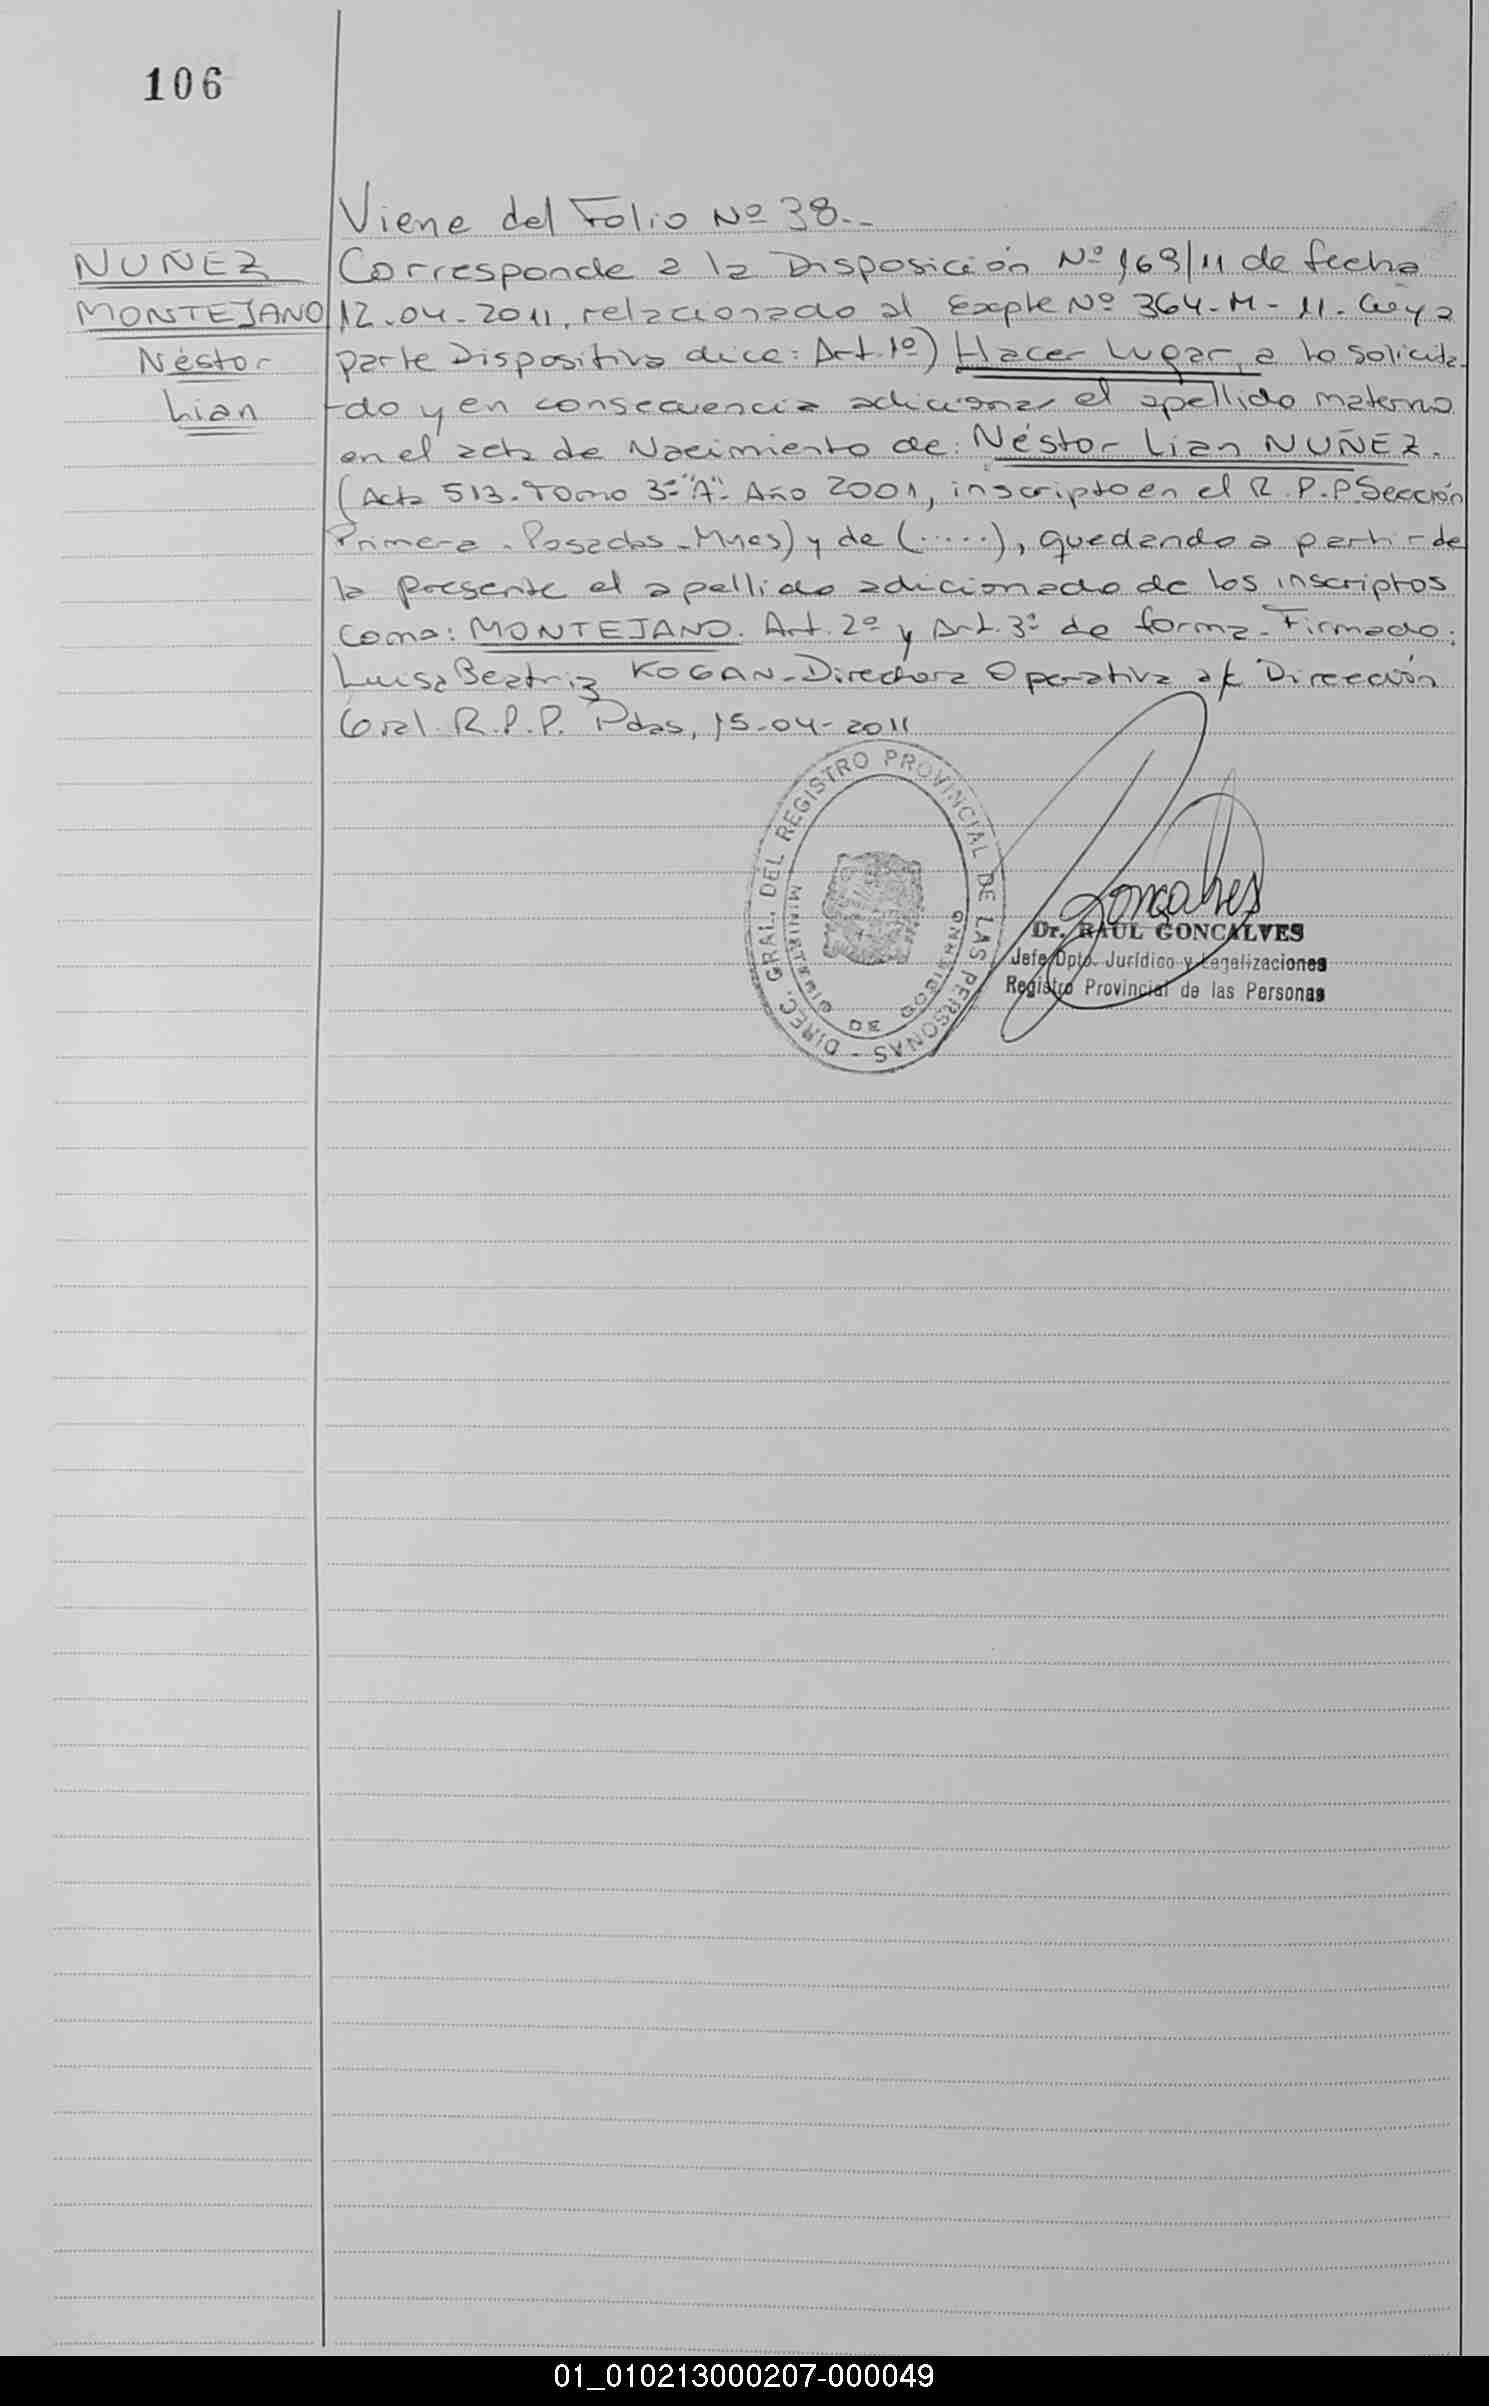 106
Viene del Folio Nº 38.-
NUÑEZ
MONTEJANO
Néstor
Lian
Corresponde a la Disposición Nº 169/11 de fecha
12.04-2011, relacionado al Expte Nº 364-M-11. Cuya
parte Dispositiva dice: Art. 1º) Hacer Lugar, a lo solicita-
-do y en consecuencia adicionar el apellido materno
en el acta de Nacimiento de: Néstor Lian NUÑEZ.
(Acta 513. Tomo 3º "A". Año 2001, inscripto en el R.P.P Sección
Primera - Posadas - Mnes) y de (.....), quedando a partir de
la presente el apellido adicionado de los inscriptos
como: MONTEJANO. Art. 2º y Art. 3º de forma - Firmado:
Luisa Beatriz KOGAN - Directora Operativa a/c Dirección
Gral. R.P.P. Pdas, 15-04-2011
DIREC. GRAL. DEL REGISTRO PROVINCIAL DE LAS PERSONAS -
MINISTERIO DE GOBIERNO
Goncalves
Dr. RAUL GONCALVES
Jefe Dpto. Jurídico y Legalizaciones
Registro Provincial de las Personas
01_010213000207-000049